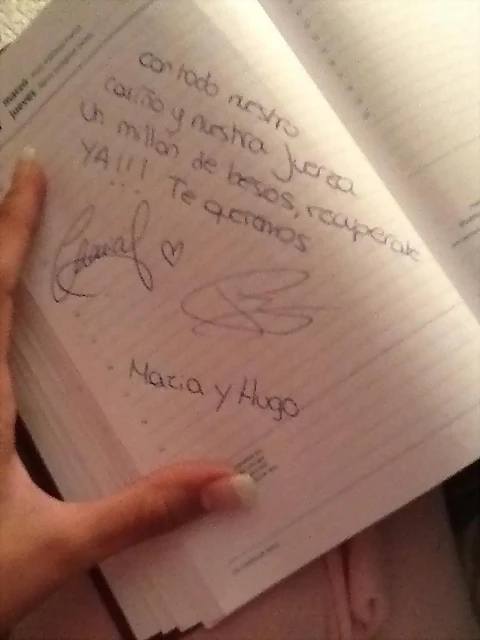 marzo
jueves
con todo nuestro
cariño y nuestra fuerza
Un millón de besos, recuperate
YA!!! Te queremos
Maria y Hugo